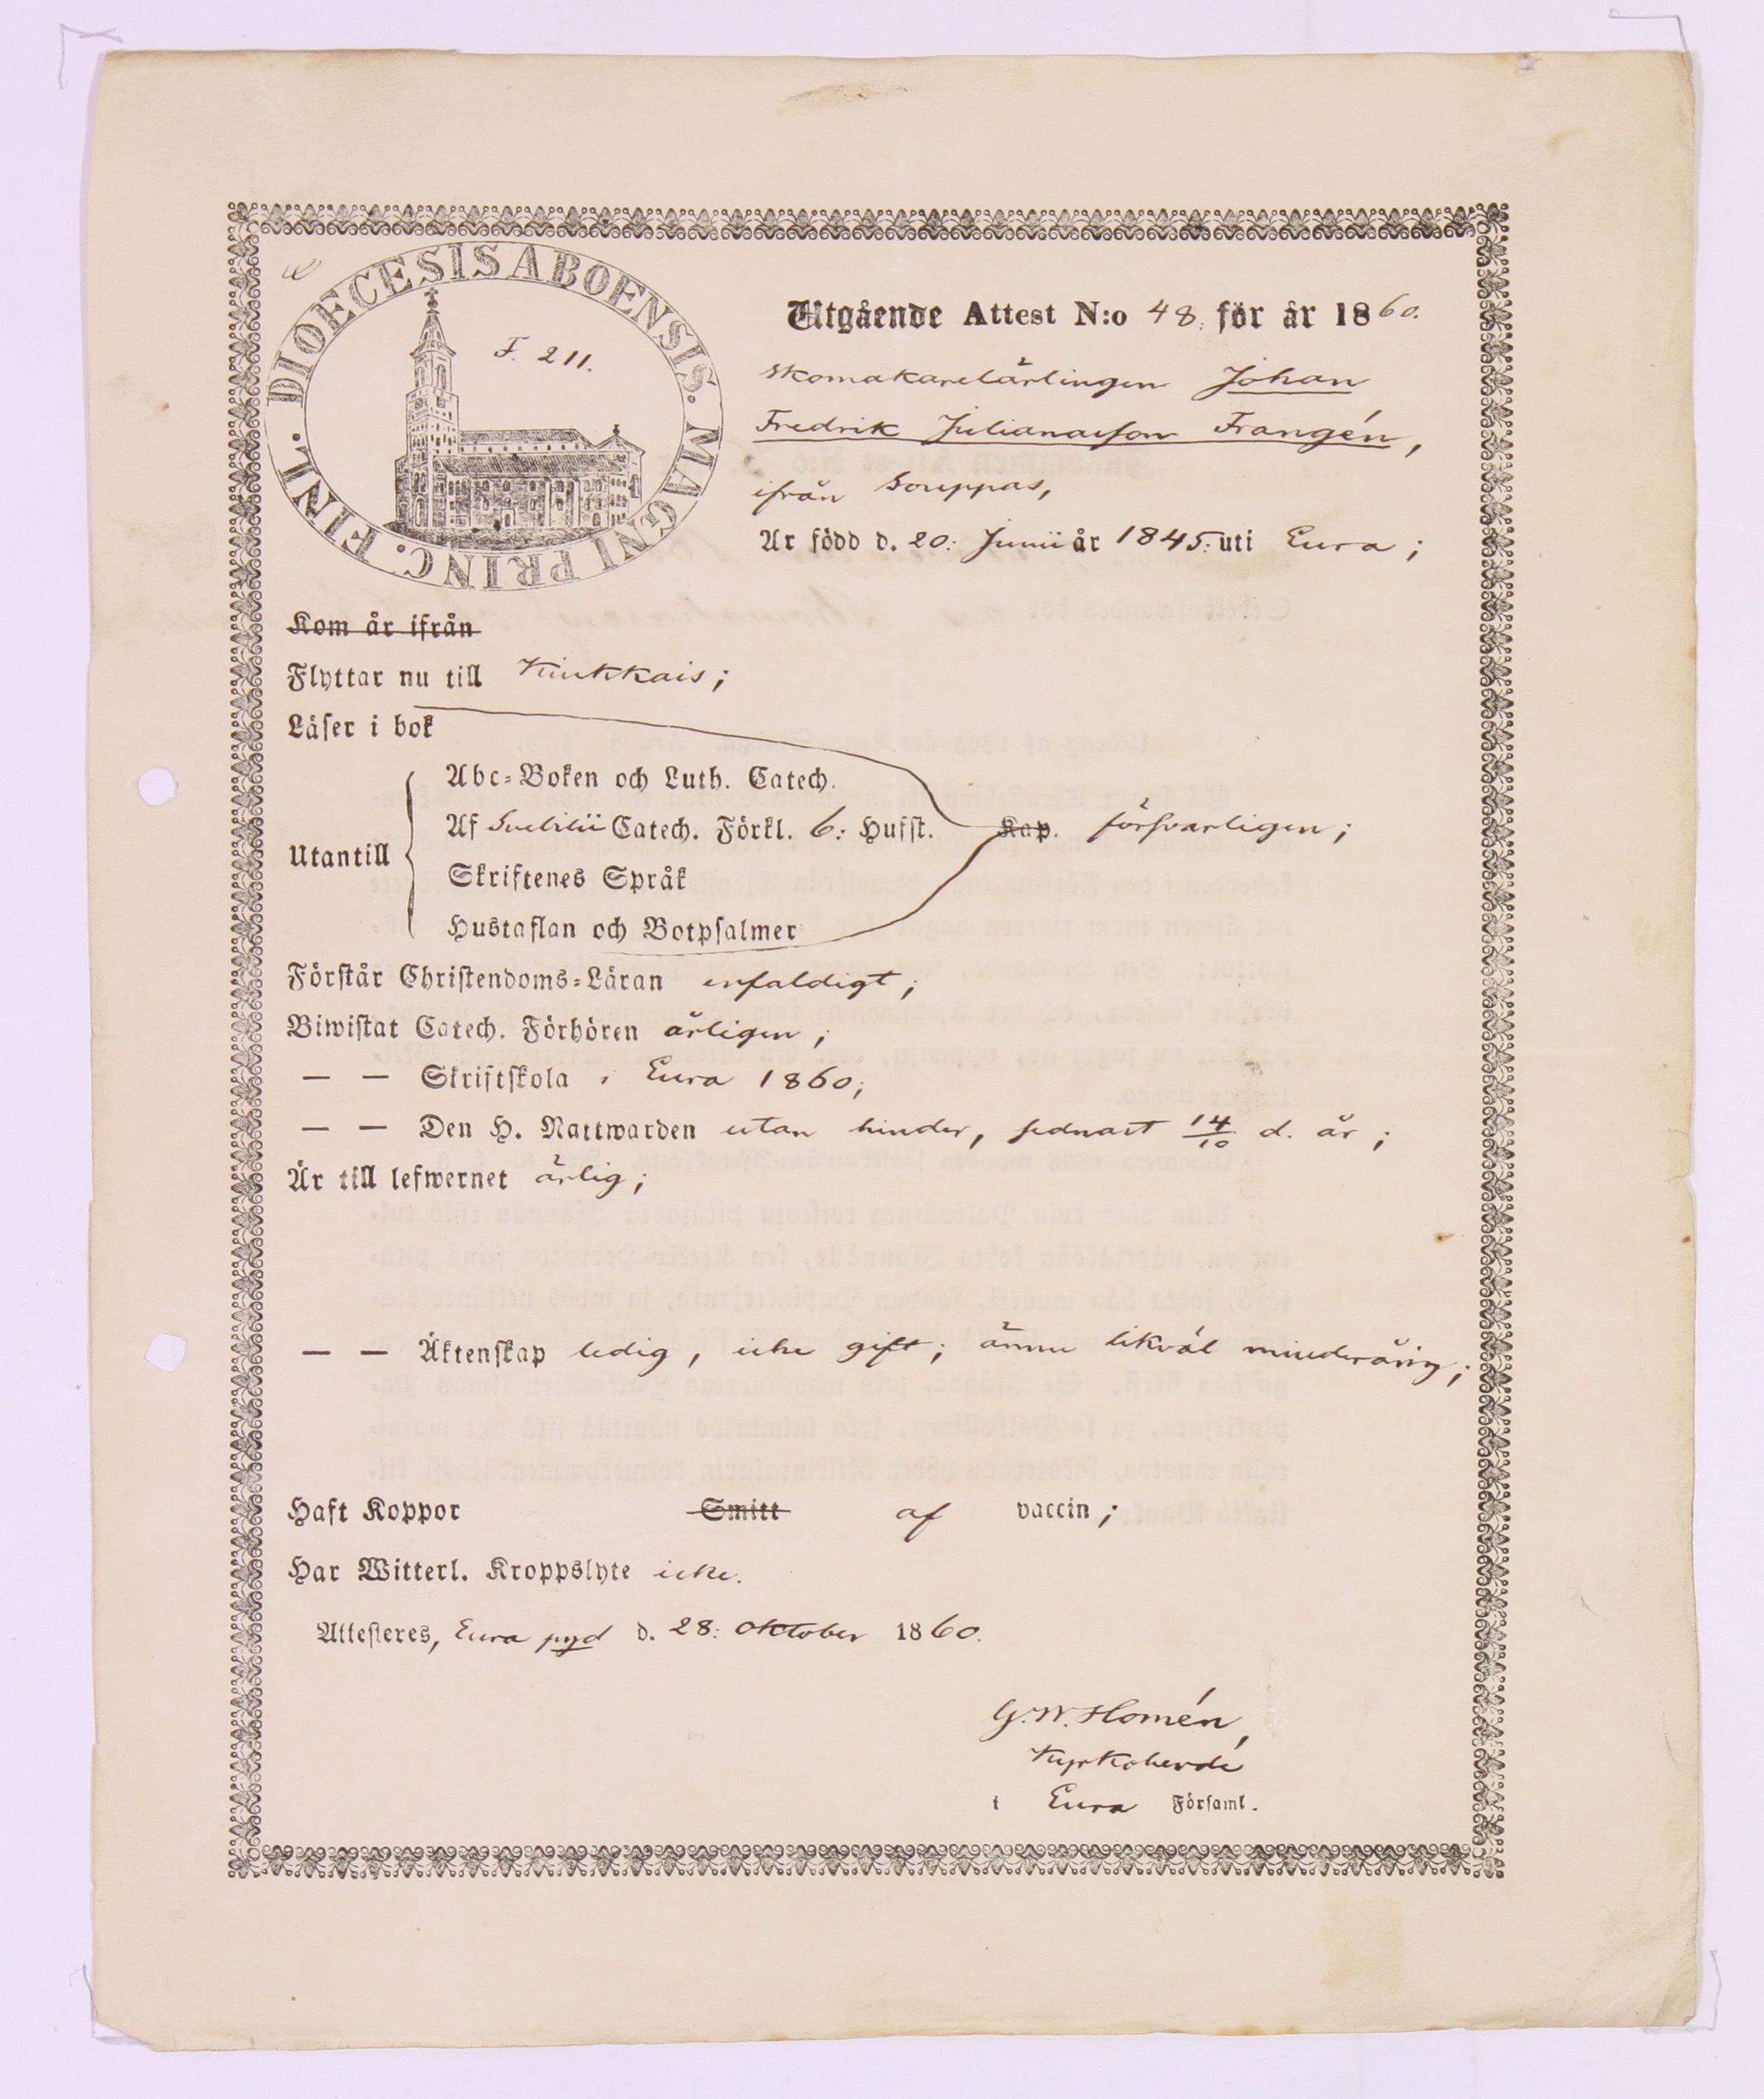 DIOECESIS ABOENSIS. MAGNI PRINC. FINL.
F. 211.
Utgående Attest N:o 48. för år 1860.
skomakarelärlingen Johan
Fredrik Julianasson Frangén,
ifrån Souppas,
Är född d. 20: Junii år 1845: uti Eura;
Kom år ifrån
Flyttar nu till Kiukkais;
Läser i bok
Utantill
Abc-Boken och Luth. Catech.
Af Svebilii Catech. Förkl. 6: Hufst. Kap. försvarligen;
Skriftenes Språk
Hustaflan och Botpsalmer
Förstår Christendoms-Läran enfaldigt;
Biwistat Catech. Förhören årligen;
— — Skriftskola i Eura 1860;
— — Den H. Nattwarden utan hinder, sednast 14/10 d. år;
Är till lefwernet ärlig;
— — Äktenskap ledig, icke gift; ännu likväl minderårig;
Haft Koppor Smitt af vaccin;
Har Witterl. Kroppslyte icke.
Attesteres, Eura pgd d. 28: Oktober 1860.
G. W. Homén,
Kyrkoherde
i Eura Församl.